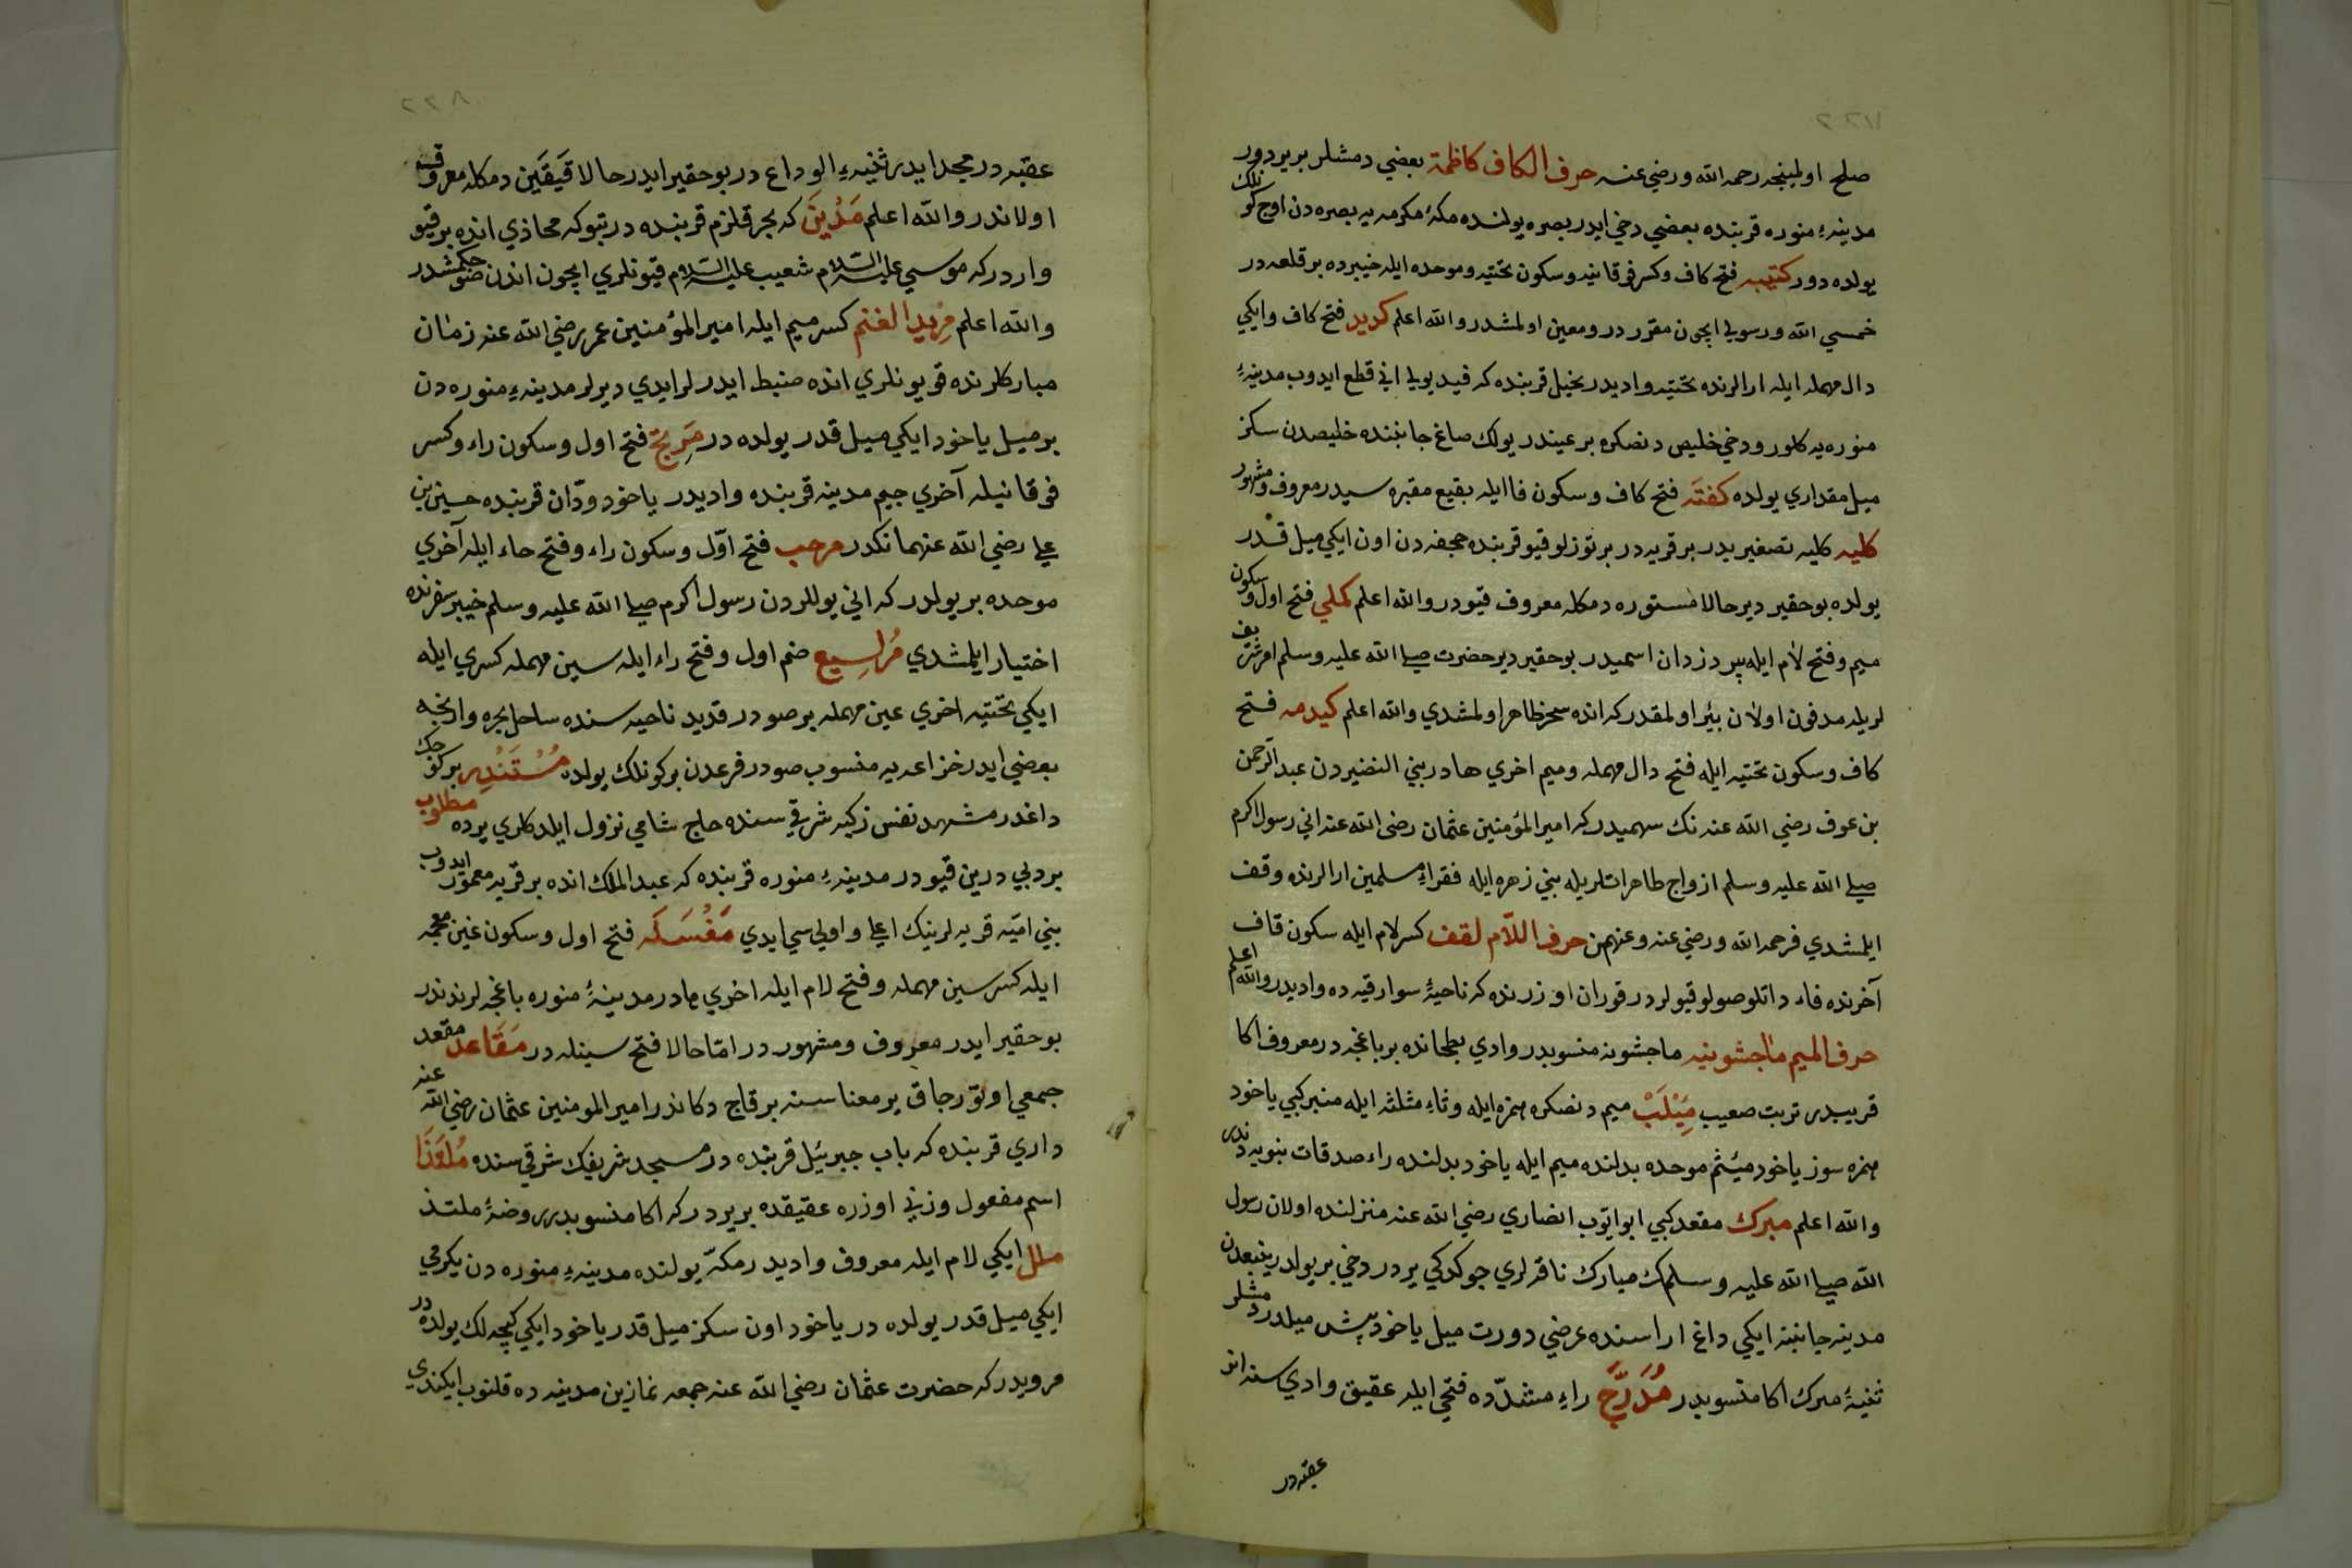 صلح اولمينجه رحمه الله ورضي عنه حرف الكاف كاظمة بعضي دمشلر بر يردور
مدينهٔ منوره قربنده بعضي دخي ايدر بصره يولنده مكهٔ مكرمه يه بصره دن اوچ كونلك
يولده دور كتيبه فتح كاف وكسر فوقانيه وسكون تحتيه وموحده ايله خيبرده بر قلعه در
خمسي الله ورسولي ايچون مقرر در ومعين اولمشدر والله اعلم كديد فتح كاف وايكي
دال مهمله ايله ارالرنده تحتيه واديدر نخيل قربنده كه فيد يولي اني قطع ايدوب مدينهٔ
منوره يه كلور ودخي خليص دنصكره بر عيندر يولك صاغ جانبنده خليصدن سكز
ميل مقداري يولده كفته فتح كاف وسكون فا ايله بقيع مقبره سيدر معروف ومشهور
كليه كليه تصغيريدر بر قريه در بر توزلو قيو قربنده جحفه دن اون ايكي ميل قدر
يولده بو حقير دير حالا مستوره دمكله معروف قيودر والله اعلم كملي فتح اول وسكون
ميم وفتح لام ايله بير ذروان اسميدر بو حقير دير حضرت صلي الله عليه وسلم امر شريف
لريله مدفون اولان بئر اولمقدر كه انده سحر ظاهر اولمشدي والله اعلم كيدمه فتح
كاف وسكون تحتيه ايله فتح دال مهمله وميم اخري هادر بني النضيردن عبد الرحمن
بن عوف رضي الله عنه نك سهميدر كه امير المؤمنين عثمان رضي الله عنه اني رسول اكرم
صلي الله عليه وسلم ازواج طاهراتلريله بني زهره ايله فقراء مسلمين ارالرنده وقف
ايلمشدي فرحمه الله ورضي عنه وعنهم من حرف اللام لقف كسر لام ايله سكون قاف
آخرنده فاء داتلو صولو قيولردر قوران اوزرنده كه ناحيهٔ سوارقيه ده واديدر والله اعلم
حرف الميم ماجشونيه ماجشونه منسوبدر وادي بطحانده بر باغچه در معروف اكا
قريبدر تربت صعيب مِيْثَبْ ميم دنصكره همزه ايله وثاء مثلثه ايله منبر كبي ياخود
همزه سوز ياخود ميثم موحده بدلنده ميم ايله ياخود بدلنده راء صدقات نبويه دندر
والله اعلم مبرك مقعد كبي ابو ايوب انصاري رضي الله عنه منزلنده اولان رسول
الله صلي الله عليه وسلمك مبارك ناقه لري چوكدكي يردر دخي بر يولدر ينبعدن
مدينه جانبنه ايكي داغ اراسنده عرضي دورت ميل ياخود بش ميلدر دمشلر
ثنيهٔ مبرك اكا منسوبدر مُدَرَّج راء مشدّده فتحي ايله عقيق وادي سنه انر
عقبه در
عقبه در مجد ايدر ثنيهٔ الوداع در بو حقير ايدر حالا قَيقَين دمكله معروف
اولاندر والله اعلم مَدْيَن كه بحر قلزم قربنده در تبوكه محاذي انده بر قيو
وارددر كه موسي عليه السلام شعيب عليه السلام قيونلري ايچون اندن صو چكمشدر
والله اعلم مِربد الغنم كسر ميم ايله امير المؤمنين عمر رضي الله عنه زمان
مباركلرنده قويونلري انده ضبط ايدرلر ايدي ديرلر مدينهٔ منوره دن
بر ميل ياخود ايكي ميل قدر يولده در مَرتج فتح اول وسكون راء وكسر
فوقانيله آخري جيم مدينه قربنده واديدر ياخود ودّان قربنده حسين بن
علي رضي الله عنهمانكدر مرحب فتح اوّل وسكون راء وفتح حاء ايله آخري
موحده بر يولدر كه اني يوللردن رسول اكرم صلي الله عليه وسلم خيبر سفرنده
اختيار ايلمشدي مُرَيسيع ضم اول وفتح راء ايله سين مهمله كسري ايله
ايكي تحتيه اخري عين مهمله بر صودر قديد ناحيه سنده ساحل بحره وارنجه
بعضي ايدر خزاعه يه منسوب صودر فرعدن بر كونلك يولده مُسْتَنْذِر بر كوچك
داغدر مشهد نفس زكيه شرقي سنده حاج شامي نزول ايلدكلري يرده مطلوب
بر ديبي درين قيودر مدينهٔ منوره قربنده كه عبد الملك انده بر قريه معمور ايدوب
بني اميّه قريه لرينك اعلي واولي سي ايدي مَغْسَلَه فتح اول وسكون غين معجمه
ايله كسر سين مهمله وفتح لام ايله اخري هادر مدينهٔ منوره باغچه لرندندر
بو حقير ايدر معروف ومشهور در امّا حالا فتح سينله در مَقَاعد مقعد
جمعي اوتورجاق ير معناسنه بر قاچ دكاندر امير المومنين عثمان رضي الله عنه
داري قربنده كه باب جبرئيل قربنده در مسجد شريفك شرقي سنده مُلتَذّا
اسم مفعول وزني اوزره عقيقده بر يردر كه اكا منسوبدر روضهٔ ملتذ
ملل ايكي لام ايله معروف واديدر مكهّ يولنده مدينهٔ منوره دن يكرمي
ايكي ميل قدر يولده در ياخود اون سكز ميل قدر ياخود ايكي كيجه لك يولده در
مرويدر كه حضرت عثمان رضي الله عنه جمعه نمازين مدينه ده قلنوب ايكندي